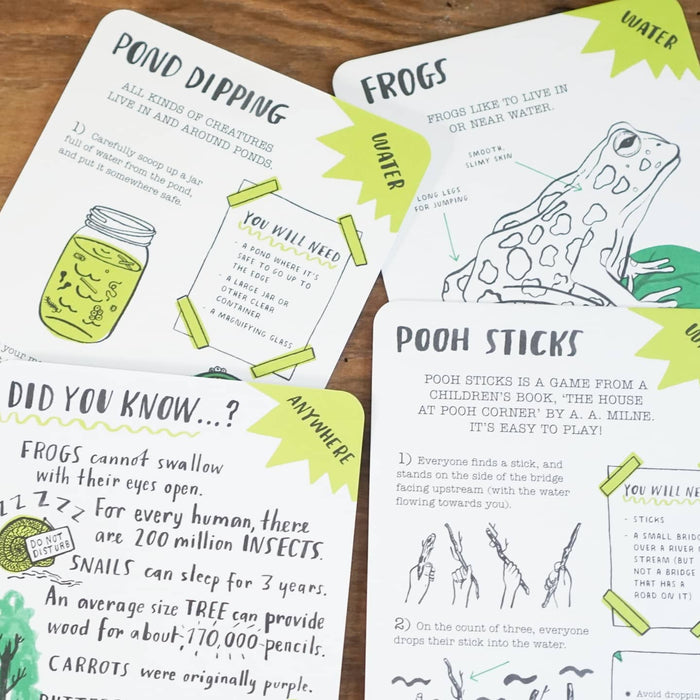 POND DIPPING
ALL KINDS OF CREATURES
LIVE IN AND AROUND PONDS.
1) Carefully scoop up a jar
full of water from the pond,
and put it somewhere safe.
WATER
YOU WILL NEED
- A POND WHERE IT'S
SAFE TO GO UP TO
THE EDGE
- A LARGE JAR OR
OTHER CLEAR
CONTAINER
- A MAGNIFYING GLASS
your
FROGS
WATER
FROGS LIKE TO LIVE IN
OR NEAR WATER.
SMOOTH,
SLIMY SKIN
LONG LEGS
FOR JUMPING
DID YOU KNOW...?
ANYWHERE
FROGS cannot swallow
with their eyes open.
ZZZZZ
DO NOT
DISTURB
For every human, there
are 200 million INSECTS.
SNAILS can sleep for 3 years.
An average size TREE can provide
wood for about 170,000 pencils.
CARROTS were originally purple.
POOH STICKS
POOH STICKS IS A GAME FROM A
CHILDREN'S BOOK, 'THE HOUSE
AT POOH CORNER' BY A. A. MILNE.
IT'S EASY TO PLAY!
1) Everyone finds a stick, and
stands on the side of the bridge
facing upstream (with the water
flowing towards you).
YOU WILL NE
- STICKS
- A SMALL BRIDG
OVER A RIVER
STREAM (BUT
NOT A BRIDGE
THAT HAS A
ROAD ON IT)
2) On the count of three, everyone
drops their stick into the water.
Avoid droppin